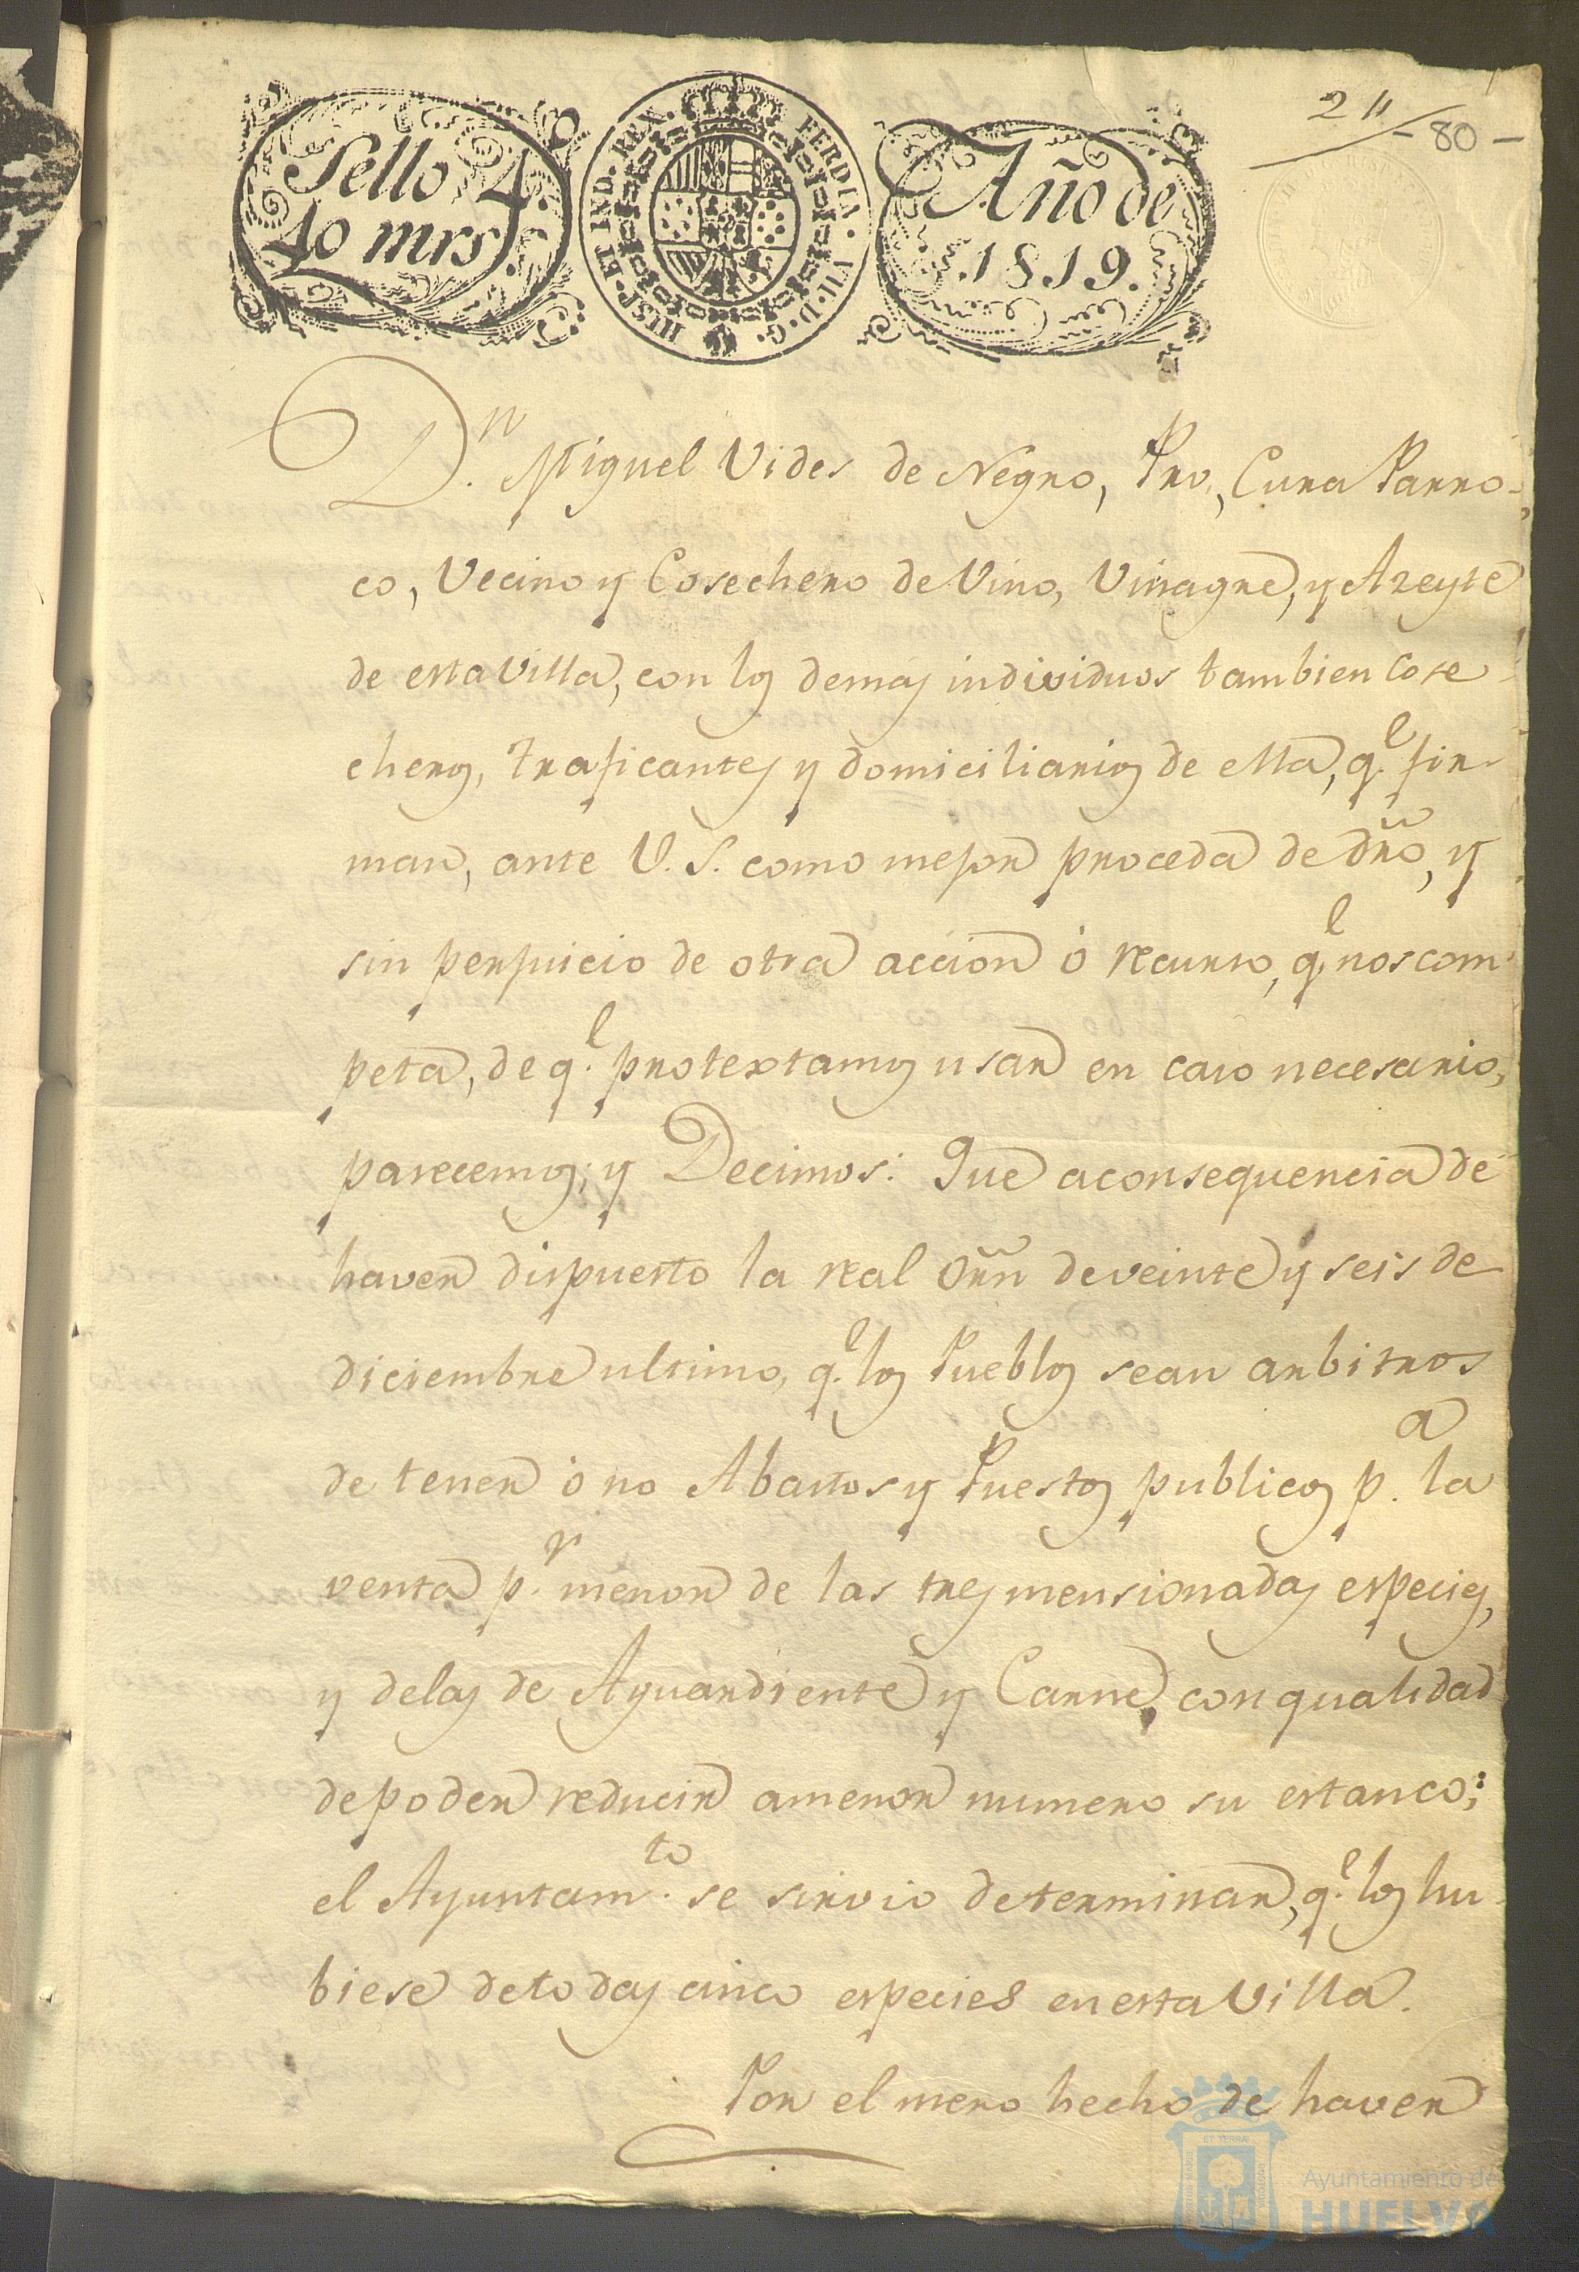 Sello 4.º
40 mrs.
HISP. ET IND. REX. FERDIN. VII. D. G.
Año de
1819.
2 11
- 80 -
D.n Miguel Vides de Negro, Pro, Cura Parro-
co, Vecino y Cosechero de Vino, Vinagre, y Azeyte
de esta Villa, con los demas individuos tambien Cose
cheros, traficantes y domiciliarios de ella, q.e fir-
man, ante V. S. como mejor proceda de dro, y
sin perjuicio de otra accion ó recurso, q.e nos com
peta, de q.e protextamos usar en caso necesario,
parecemos; y Decimos: Que a consequencia de
haver dispuesto la real Orn de veinte y seis de
diciembre ultimo, q.e los Pueblos sean arbitros
de tener ó no Abastos y Puestos publicos p.a la
venta p.r menor de las tres mensionadas especies,
y de las de Aguardiente y Carne, con qualidad
de poder reducir a menor numero su estanco;
el Ayuntam.to se sirvio determinar, q.e los hu
biese de todas cinco especies en esta Villa.
Por el mero hecho de haver
Ayuntamiento de
HUELVA